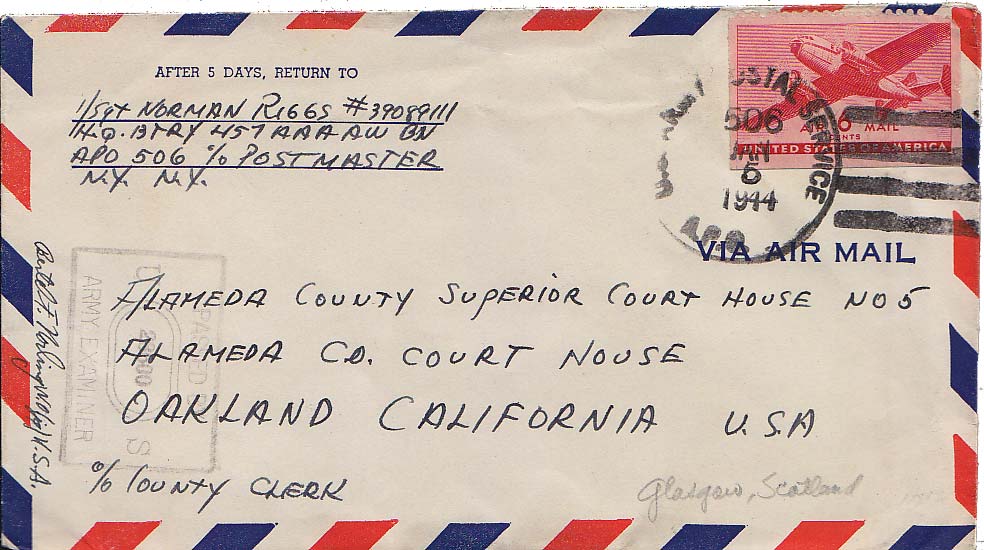 AFTER 5 DAYS, RETURN TO
1/Sgt NORMAN RIGGS #39089111
H.Q. BTRY 457 AAA AW BN
APO 506 % POSTMASTER
N.Y. N.Y.
POSTAL SERVICE
506
JAN
6
1944
A.P.O.
AIR 6 MAIL
CENTS
UNITED STATES OF AMERICA
VIA AIR MAIL
ALAMEDA COUNTY SUPERIOR COURT HOUSE NO 5
ALAMEDA CO. COURT HOUSE
OAKLAND CALIFORNIA U.S.A
% COUNTY CLERK
PASSED
U S
ARMY EXAMINER
U.S.A.
Glasgow, Scotland